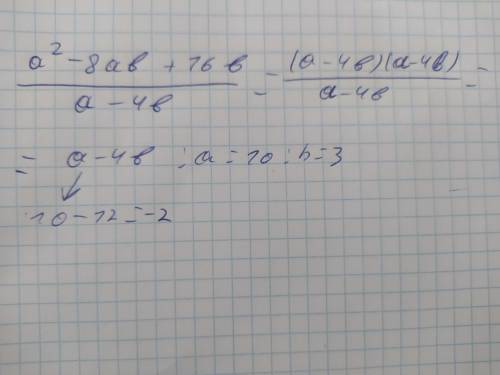 a² - 8ab + 16b / a - 4b = (a - 4b)(a - 4b) / a - 4b =
= a - 4b ; a = 10 ; b = 3
10 - 12 = -2